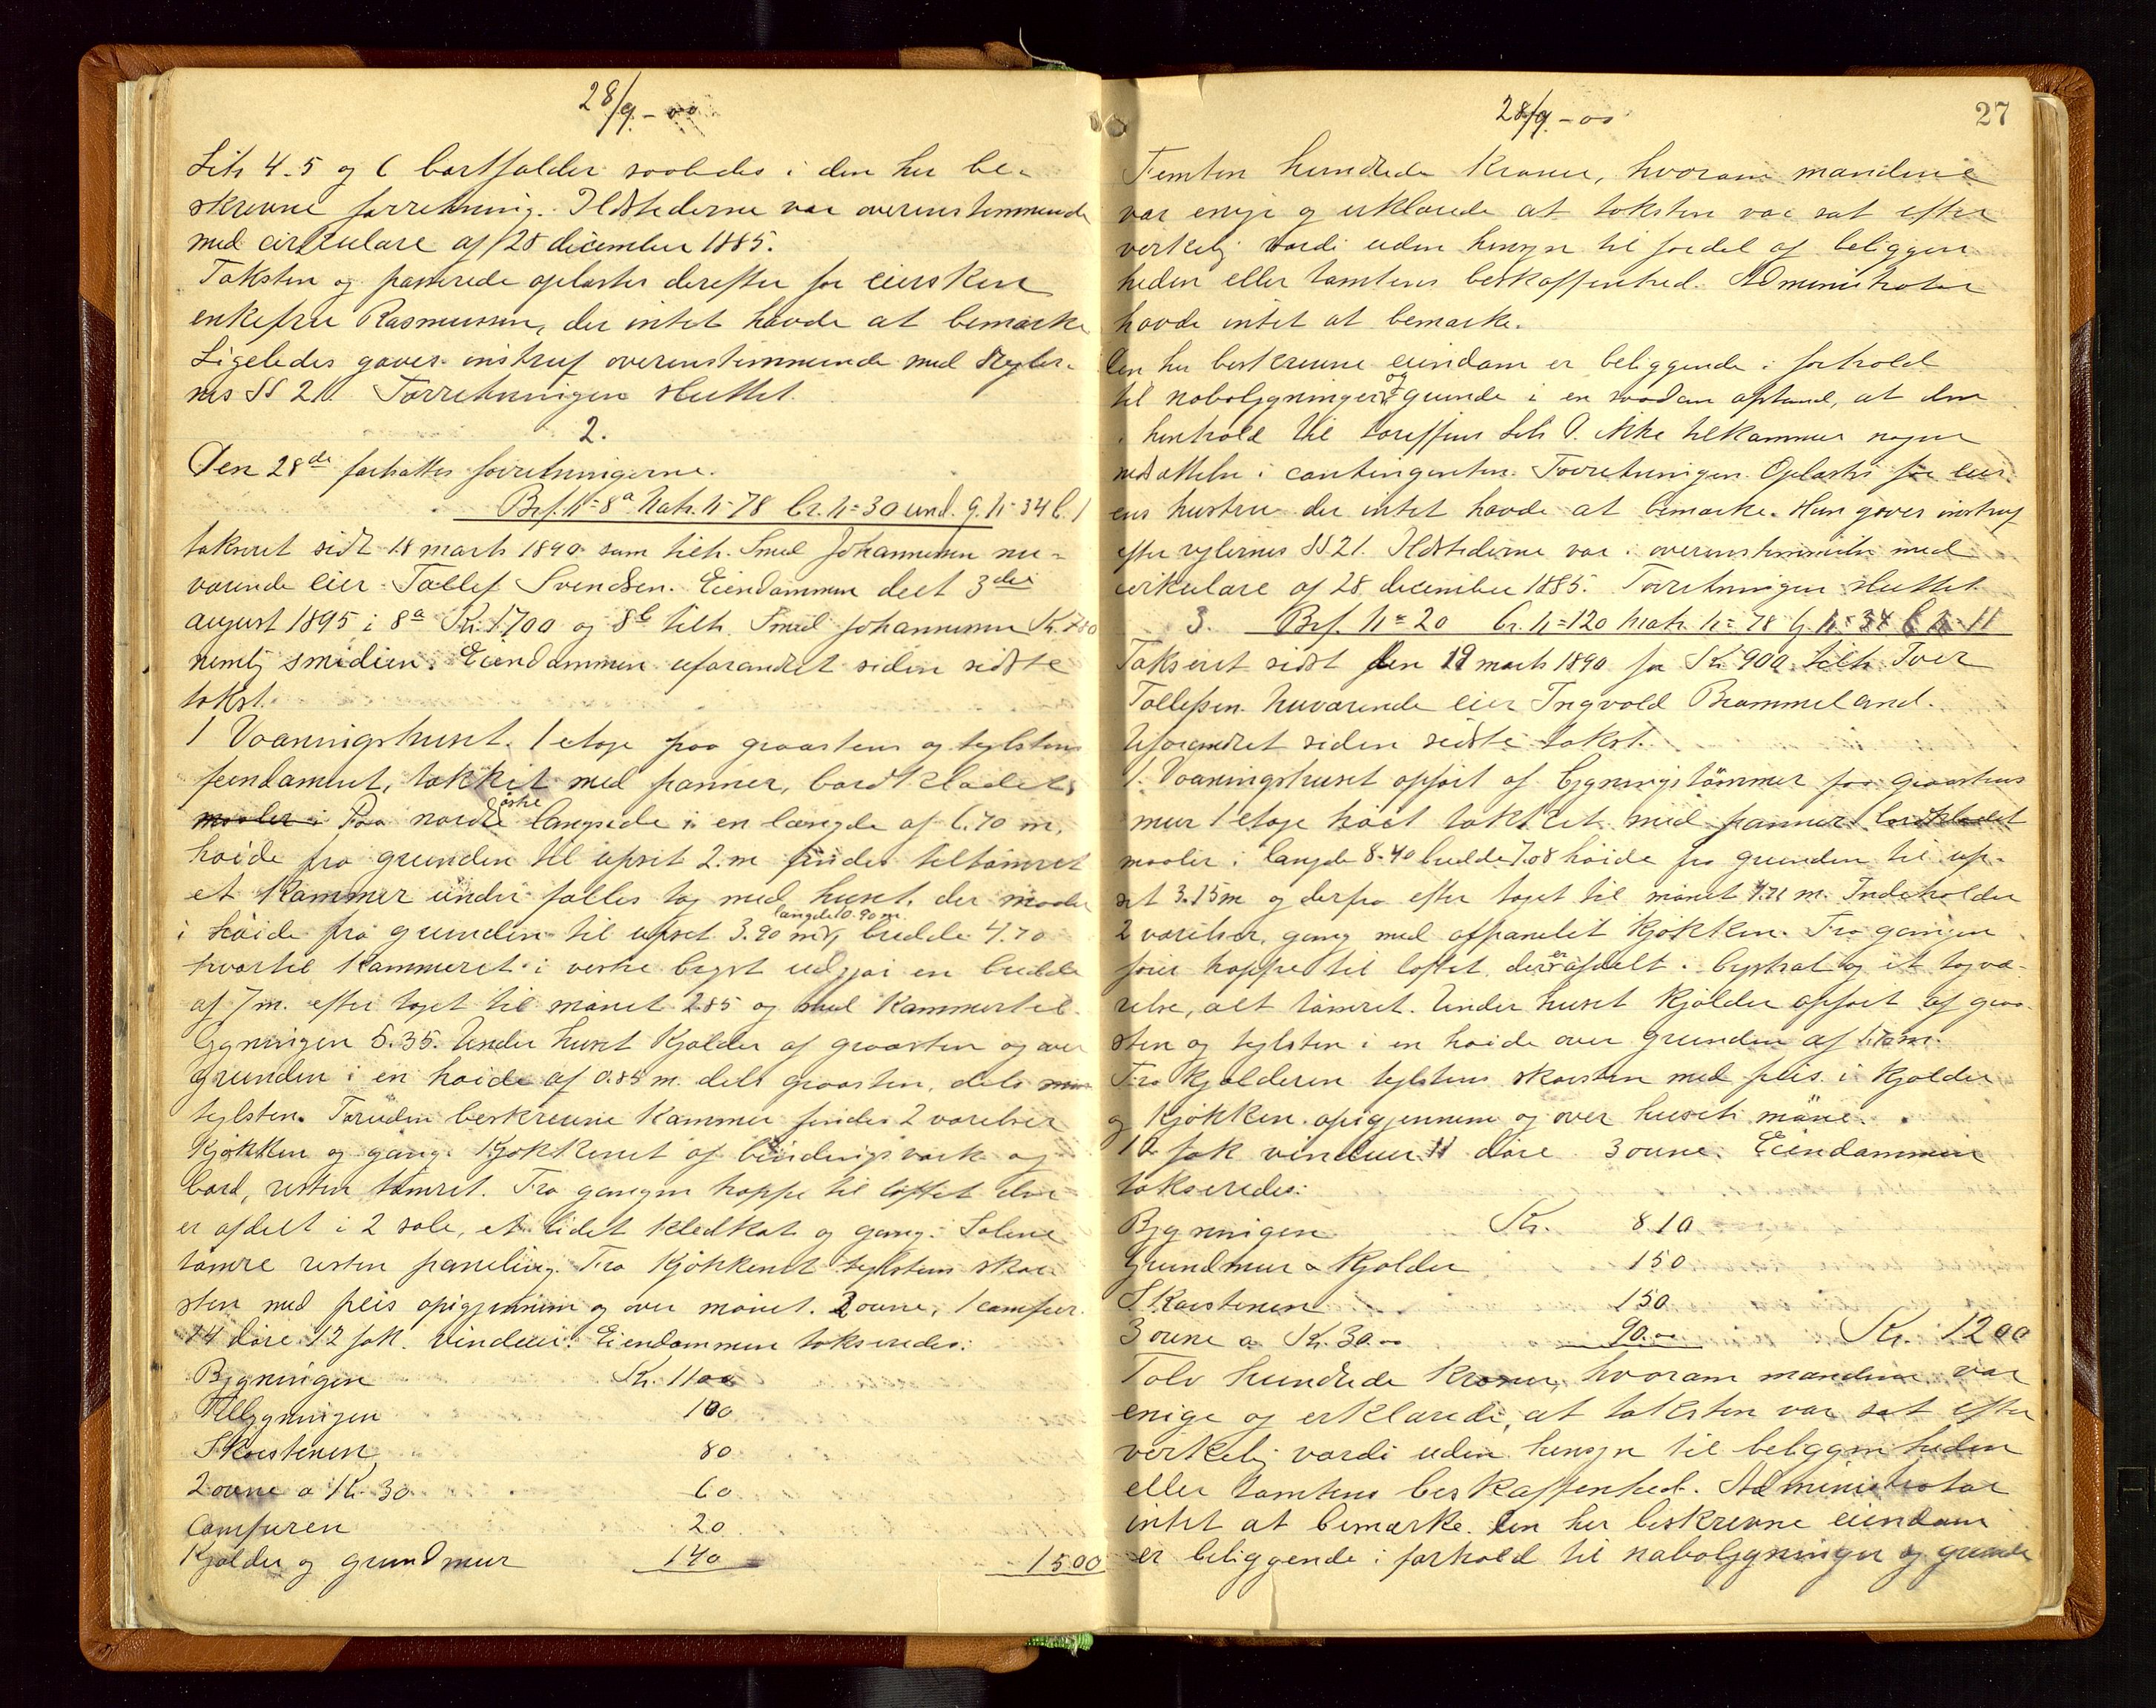 28/9 - 00
Litr 4-5 og 6 bortfalder saaledes i den her be-
skrevne forretning. Ildstederne var overensstemmende
med circulære af 28 december 1885.
Taksten og passerede oplæstes derefter for eiersken
enkefru Rasmussen, der intet havde at bemærke
Ligeledes gaves instruf overensstemmende med Regler-
nes §§ 21. Forretningen sluttet.
2.
Den 28de fortsattes forretningerne.
Brf. № 8a Matr. № 78 Br. № 30 und. G. № 34 b. 1
takseret sidt 18 marts 1890 som tilh. Smed Johannesen nu-
værende eier Tollef Svendsen. Eiendommen delt 3die
august 1895 i 8a Kr. 1700 og 8b tilh. Smed Johannesen Kr.
nemlig smedien. Eiendommen uforandret siden sidste
takst.
1 Vaaningshuset. 1 etage paa graastens og teglstens
fundament, takket med panner, bordklædet,
maaler i Paa nordøstre langside i en længde af 6.70 m.
høide fra grunden til upset 2.m findes tiltømret
et kammer under fælles tag med huset, der maaler
i høide fra grunden til upset 3.90 m, længde 10.90 m. bredde 4.70
hvortil kammeret i vestre bygst udgjør en bredde
af 7 m. efter taget til mønet 2.85 og med kammertil-
bygningen 5.35. Under huset kjælder af graasten og over
grunden i en høide af 0.85 m. dels graasten, dels
teglsten. Foruden beskrevne kammer findes 2 værelser
kjøkken og gang. Kjøkkenet af bindingsværk og
bord, resten tømret. Fra gangen trappe til loftet der
er afdelt i 2 sale, et lidet kledkot og gang. Salene
tømre resten paneling. Fra kjøkkenet teglstens skor-
sten med peis opigjennem og over mønet. 2 ovne, 1 comfur
14 døre 12 fak. vinduer. Eiendommen takseredes:
Bygningen Kr. 1100
Tilbygningen 100
Skorstenen 80
2 ovne a Kr. 30 60
Comfuren 20
Kjælder og grundmur 140 1500
28/9 - 00
27
Femten hundrede Kroner, hvorom mændene
var enige og erklærede at taksten var sat efter
verkelig værdi uden hensyn til fordel af beliggen
heden eller tomtens beskaffenhed. Administrator
havde intet at bemærke.
Den her beskrevne eiendom er beliggende i forhold
til nabobygninger og grunde i en saadan afstand, at den
i henhold til tariffens Litr P. ikke tilkommer nogen
nedsættelse i contingenten. Forretningen Oplæstes for eier-
ens hustru der intet havde at bemærke. Hun gaves instruf
efter reglernes §§ 21. Ildstederne var i overensstemmelse med
cirkulære af 28 december 1885. Forretningen sluttet.
3. Brf. № 20 Br. № 120 Matr. № 78 G. № 34 b № 11
Takseret sidst den 19 marts 1890 for Kr. 900 tilh. Tver
Tollefsen. Nuværende eier Ingvald Brommeland.
Uforandret siden sidste takst.
1. Vaaningshuset opført af bygningstømmer paa graastens
mur 1 etage høit takket med panner bordklædet
maaler i længde 8.40 bredde 7.08 høide fra grunden til up-
set 3.15m og derfra efter taget til mønet 4.21 m. Indeholder
2 værelser, gang med afpanelet kjøkken. Fra gangen
fører trappe til loftet der er afdelt i bystrat og et tagvæ-
relse, alt tømret. Under huset kjælder opført af graa-
sten og teglsten i en høide over grunden af 1.10 m.
Fra kjælderen teglstens skorsten med peis i kjælder
og kjøkken opigjennem og over husets møne.
10 fak vinduer 11 døre 3 ovne. Eiendommen
takseredes:
Bygningen Kr. 810
Grundmur & kjælder 150
Skorstenen 150
3 ovne a Kr. 30.00 90.00 Kr. 1200
Tolv hundrede Kroner, hvorom mændene var
enige og erklærede, at taksten var sat efter
verkelig værdi uden hensyn til beliggenheden
eller tomtens beskaffenhed. Administrator
intet at bemærke. Den her beskrevne eiendom
er beliggende i forhold til nabobygninger og grunde